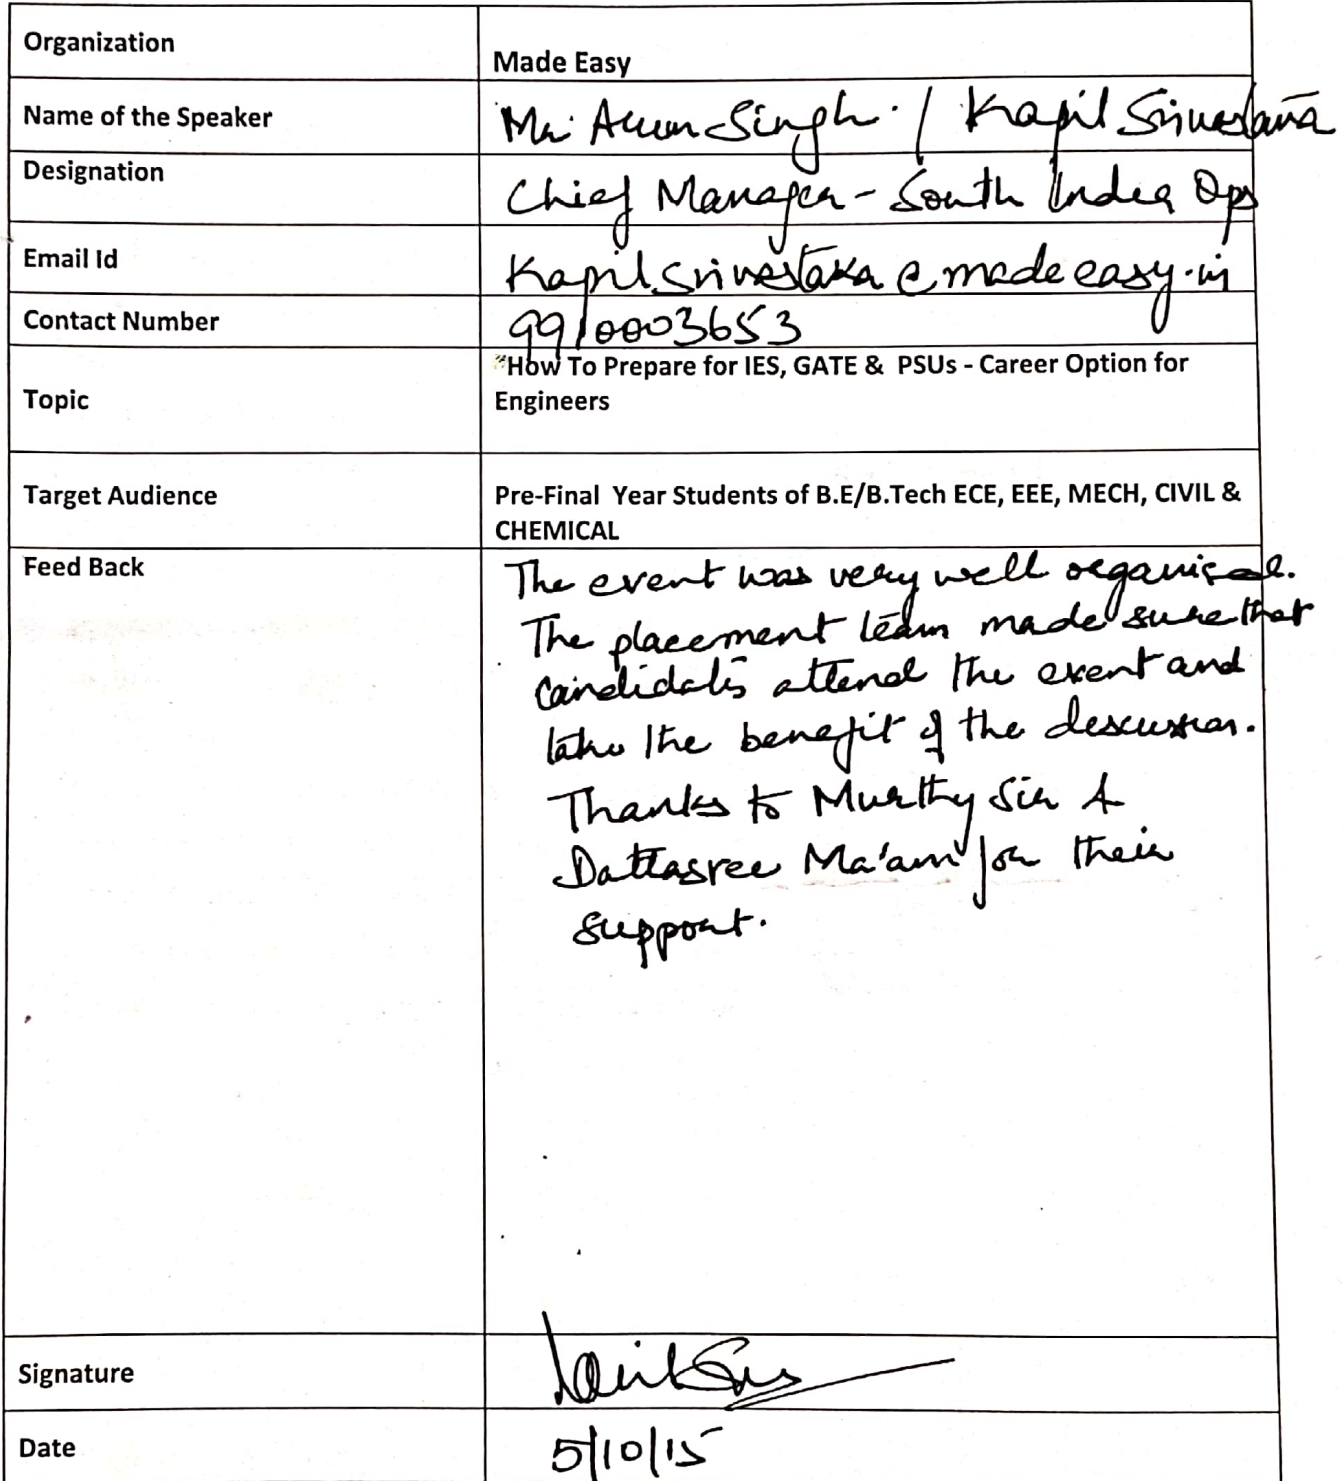 Organization
Made Easy
Name of the Speaker
Mr. Arun Singh. / Kapil Srivastava
Designation
Chief Manager - South India Ops
Email Id
Kapil.srivastava@madeeasy.in
Contact Number
9910003653
Topic
"How To Prepare for IES, GATE & PSUs - Career Option for
Engineers
Target Audience
Pre-Final Year Students of B.E/B.Tech ECE, EEE, MECH, CIVIL &
CHEMICAL
Feed Back
The event was very well organised.
The placement team made sure that
candidates attend the event and
take the benefit of the discussion.
Thanks to Murthy Sir &
Dattasree Ma'am for their
support.
Signature
Date
5/10/15